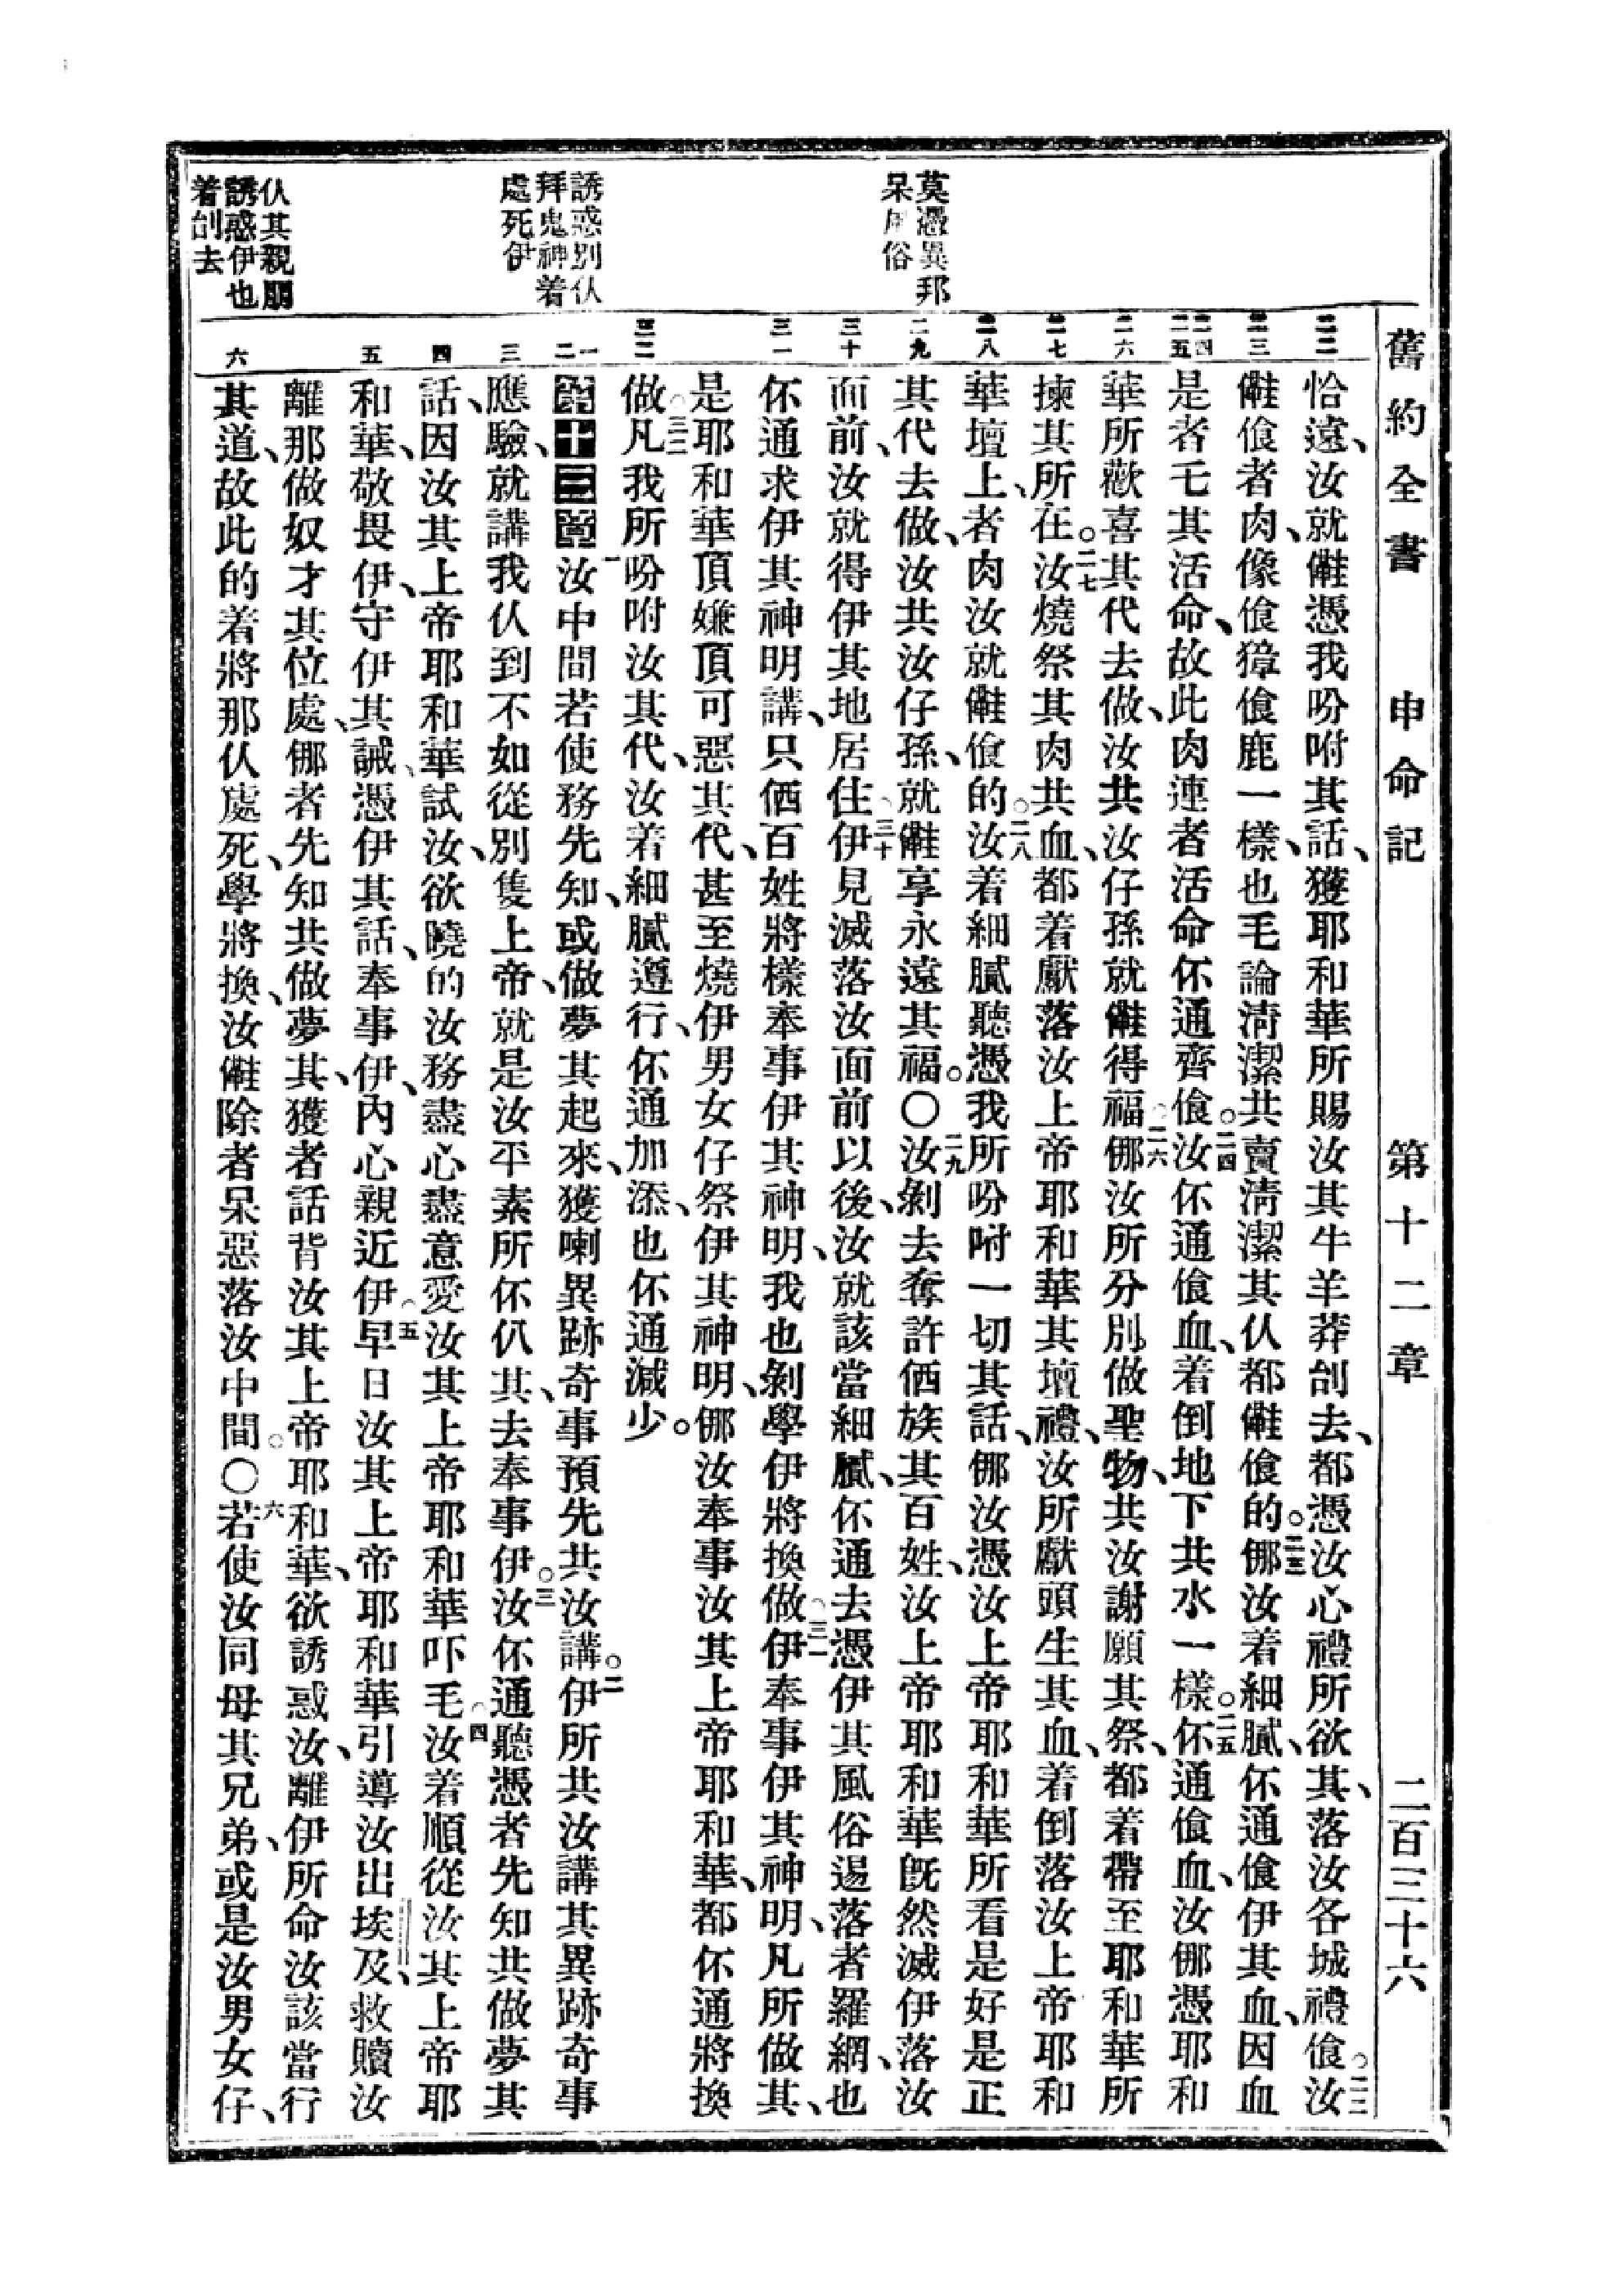 舊約全書 申命記 第十二章 二百三十六
莫憑異邦
呆風俗
誘惑別仈
拜鬼神着
處死伊
仈其親朋
誘惑伊也
着刣去
二二
二三
二四
二五
二六
二七
二八
二九
三十
三一
三二
一
二
三
四
五
六
恰遠、汝就𠆧憑我吩咐其話、獲耶和華所賜汝其牛羊莽刣去、都憑汝心禮所欲其、落汝各城禮飡。○二二汝
𠆧飡者肉、像飡獐飡鹿一樣、也毛論清潔共賣清潔其仈都𠆧飡的。○二三㑚汝着細膩、伓通飡伊其血、因血
是者乇其活命、故此肉連者活命伓通齊飡。○二四汝伓通飡血、着倒地下共水一樣。○二五伓通飡血、汝㑚憑耶和
華所歡喜其代去做、汝共汝仔孫就𠆧得福。○二六㑚汝所分別做聖物、共汝謝願其祭、都着帶至耶和華所
揀其所在。○二七汝燒祭其肉共血、都着獻落汝上帝耶和華其壇禮、汝所獻頭生其血、着倒落汝上帝耶和
華壇上、者肉汝就𠆧飡的。○二八汝着細膩聽憑我所吩咐一切其話、㑚汝憑汝上帝耶和華所看是好是正
其代去做、汝共汝仔孫、就𠆧享永遠其福。〇二九汝剝去奪許㑚族其百姓、汝上帝耶和華旣然滅伊落汝
面前、汝就得伊其地居住。○三十伊見滅落汝面前以後、汝就該當細膩、伓通去憑伊其風俗逿落者羅網、也
伓通求伊其神明講、只㑚百姓將樣奉事伊其神明、我也剝學伊將換做。○三一伊奉事伊其神明、凡所做其、
是耶和華頂嫌頂可惡其代、甚至燒伊男女仔祭伊其神明、㑚汝奉事汝其上帝耶和華、都伓通將換
做。○三二凡我所吩咐汝其代、汝着細膩遵行、伓通加添、也伓通減少。
第十三章 一汝中間若使務先知、或做夢其起來、獲喇異跡奇事預先共汝講。○二伊所共汝講其異跡奇事
應驗、就講我仈到不如從別隻上帝、就是汝平素所伓仈其、去奉事伊。○三汝伓通聽憑者先知共做夢其
話、因汝其上帝耶和華試汝、欲曉的汝務盡心盡意愛汝其上帝耶和華吓毛。○四汝着順從汝其上帝耶
和華、敬畏伊、守伊其誡、憑伊其話、奉事伊、內心親近伊。○五早日汝其上帝耶和華引導汝出埃及、救贖汝
離那做奴才其位處、㑚者先知共做夢其、獲者話背汝其上帝耶和華、欲誘惑汝、離伊所命汝該當行
其道、故此的着將那仈處死、學將換、汝𠆧除者呆惡落汝中間。〇六若使汝同母其兄弟、或是汝男女仔、